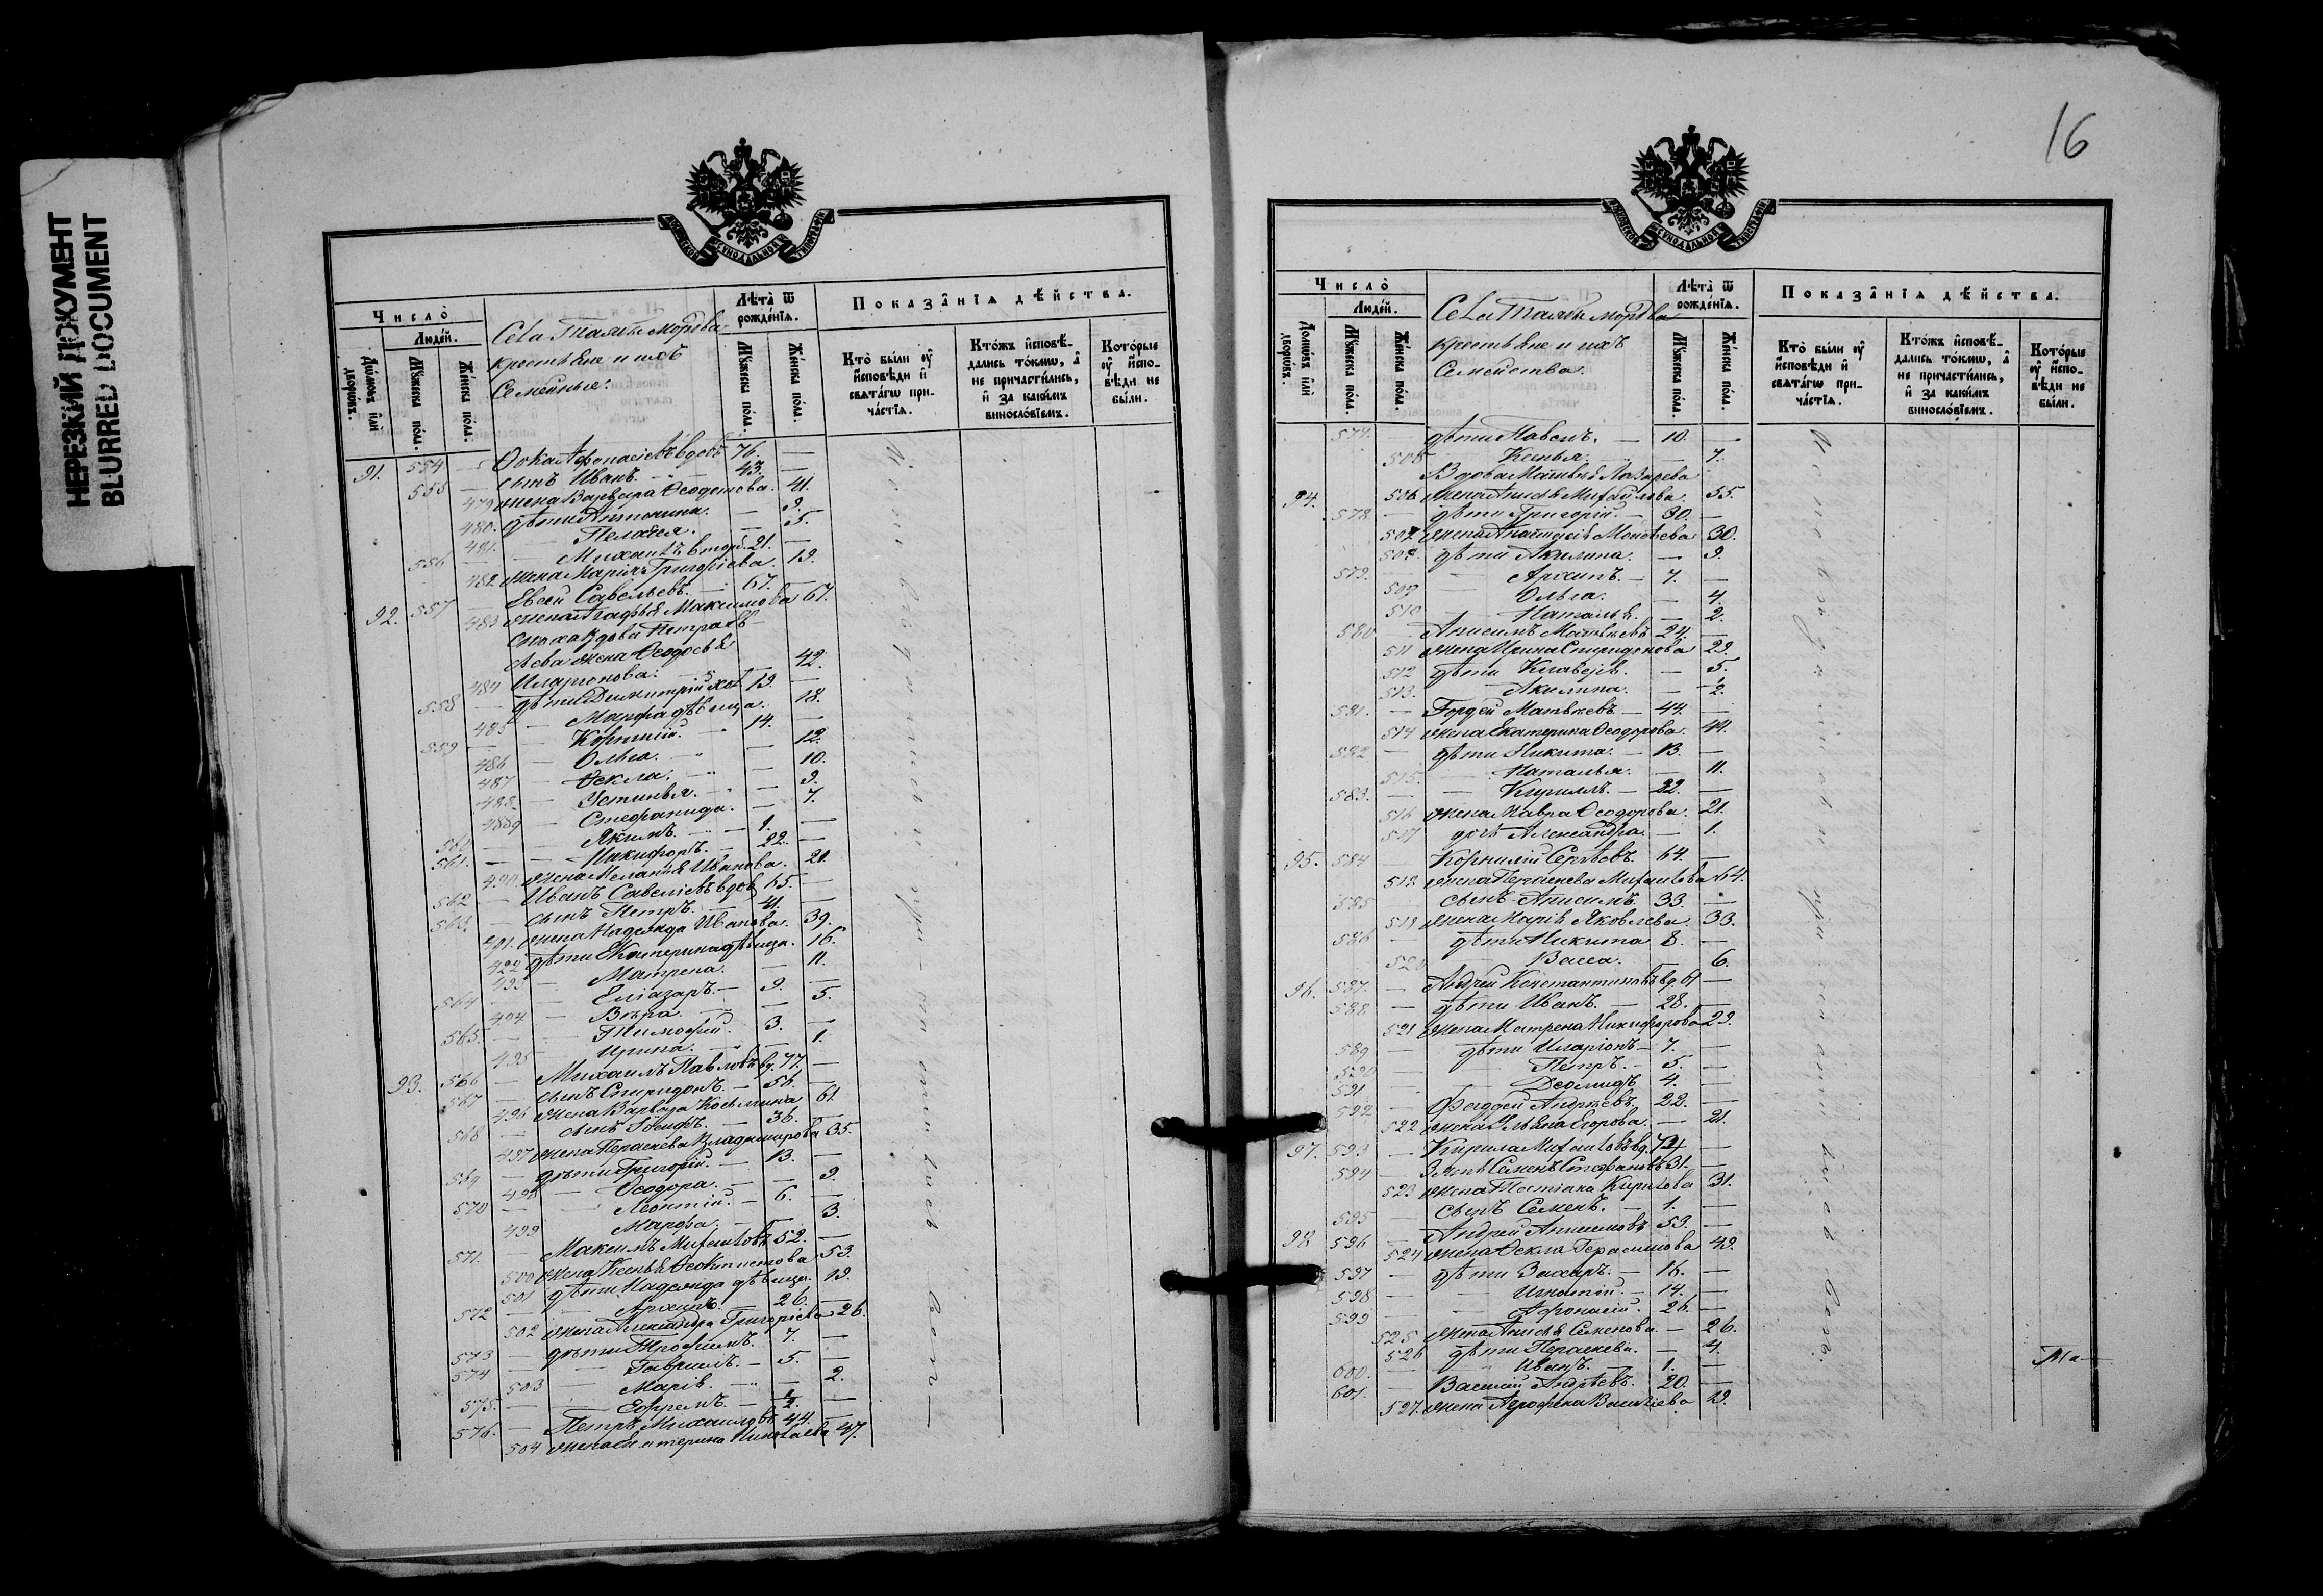 НЕРЕЗКИЙ ДОКУМЕНТ
BLURRED DOCUMENT
Число̀
Люде́й.
Домѡ́въ и҆лѝ дворѡ́въ.
Мꙋ́жеска по́ла.
Же́нска по́ла.
Села мордва
крестьяне и ихъ
Семейные.
Лѣ́та ѿ рожде́нїѧ.
Мꙋ́жеска по́ла.
Же́нска по́ла.
Показа̑нїѧ дѣ́йства.
Кто̀ бы́ли ᲂу҆ и҆сповѣ́ди и҆ свѧта́гѡ прича́стїѧ.
Кто́жъ и҆сповѣ́дались то́кмѡ, а҆ не причасти́лись, и҆ за каки́мъ винослѡ́вїемъ.
Кото́рые ᲂу҆ и҆сповѣ́ди не бы́ли.
91. 554 — Ѳока Афонасіевъ вдовъ 76. —
555 — сынъ Иванъ. — 43. —
479 жена Варвара Ѳеодотова. 41.
480. дѣти Антонина. — 9.
481. — Пелагея. — 5.
556 — Михаилъ второй 21. —
482 жена Марія Григоріева. 19.
92. 557 — Евсей Савельевъ. — 67. —
483 жена Агафья Максимова 67.
сноха вдова Петра
жена Ѳеодосья
484 Иларіонова. — 42.
558 — дѣти Димитрій хол 19. —
485 — Марфа дѣвица. 18.
559 — Корнилій. — 14. —
486 — Ольга. — 12.
487 — Ѳекла. — 10.
488 — Устинья. — 9.
489 — Стефанида. — 7.
560 — Якимъ. — 1. —
561. — Никифоръ. — 22. —
490. жена Меланья Иванова. 21.
562 — Иванъ Савеліевъ вдов 65. —
563. — сынъ Петръ. — 41. —
491. жена Надежда Иванова. 39.
492 дѣти Екатерина дѣвица. 16.
493 — Матрена. — 11.
564 — Еліазаръ. — 9. —
494 — Вѣра. — 5.
565. — Тимофей. 3. —
495 — Ирина. — 1.
93. 566 — Михаилъ Павловъ вд. 77. —
567 — сынъ Спиридонъ. — 56. —
496 жена Варвара Косьмина 61.
568 — сынъ Іосифъ. — 36. —
497 жена Параскева Владимирова 35.
569 — дѣти Григорій. — 13. —
498 — Ѳеодора. — 9.
570 — Леонтій. — 6. —
499 — Марфа. — 3.
571. — Максимъ Михаиловъ 52. —
500 жена Ксенья Ѳеоктистова 53.
501 дѣти Надежда дѣвица. 19.
572 — Архипъ. 26. —
502 жена Александра Григоріева 26.
573 — дѣти Трофимъ. 7. —
574 — Гавриилъ. — 5. —
503 — Марія. — 2.
575. — Ефремъ. — ½ —
576. — Петръ Михаиловъ 44. —
504 жена Екатерина Николаева 47.
16
Число̀
Люде́й.
Домѡ́въ и҆лѝ дворѡ́въ.
Мꙋ́жеска по́ла.
Же́нска по́ла.
Села мордва
крестьяне и ихъ
Семейства.
Лѣ́та ѿ рожде́нїѧ.
Мꙋ́жеска по́ла.
Же́нска по́ла.
Показа̑нїѧ дѣ́йства.
Кто̀ бы́ли ᲂу҆ и҆сповѣ́ди и҆ свѧта́гѡ прича́стїѧ.
Кто́жъ и҆сповѣ́дались то́кмѡ, а҆ не причасти́лись, и҆ за каки́мъ винослѡ́вїемъ.
Кото́рые ᲂу҆ и҆сповѣ́ди не бы́ли.
577. дѣти Павелъ. — 10. —
505 — Ксенья. — 7.
Вдова Матвѣя Лазарева
94. 506 жена Анисья Михайлова. 55.
578 — дѣти Григорій. — 30. —
507 жена Анастасія 30.
508. дѣти Акилина. — 9.
579. — Архипъ. — 7. —
509 — Ольга. — 4.
510 — Наталья. — 2.
580 — Анисимъ Матвѣевъ 24. —
511 жена Ирина Спиридонова 23.
512 дѣти — 5.
513. — Акилина. — ½.
581. — Гордей Матвѣевъ — 44. —
514 жена Екатерина Ѳеодорова. 44.
582 — дѣти Никита. — 13. —
515. — Наталья. — 11.
583. — Кириллъ. — 22. —
516 жена Мавра Ѳеодорова. 21.
517 дочь Александра — 1.
95. 584 — Корнилій Сергѣевъ. 64. —
518. жена Параскева Михаилова 64.
585 — сынъ Анисимъ. 33. —
519 жена Марія Яковлева. 33.
586 — дѣти Никита 8. —
520 — Васса. — 6.
96. 587. — Андрей Константиновъ вд. 61 —
588 — дѣти Иванъ. — 28. —
521 жена Матрена Никифорова 29.
589 — дѣти Иларіонъ — 7. —
590 — Петръ. — 5. —
591 — Деомидъ 4. —
592 — Фаддей Андреевъ. 22. —
522 жена Ульяна Егорова. — 21.
97. 593 — Кирила Михаиловъ вд. —
594 — Зять Семенъ Стефановъ 31. —
523 жена Татіана Кирилова 31.
595 — сынъ Семенъ. — 1. —
98 596 — Андрей Анисимовъ 53. —
524 жена Ѳекла Герасимова 49.
597 — дѣти Захаръ. — 16. —
598 — Игнатій. — 14. —
599 — Афонасій. 26. —
525 жена Анисья Семенова. — 26.
526 дѣти Параскева. — 4.
600. — Иванъ. — 1. —
601. — Василій Андреевъ. 20. —
527. жена Агрофена Василіева 19.